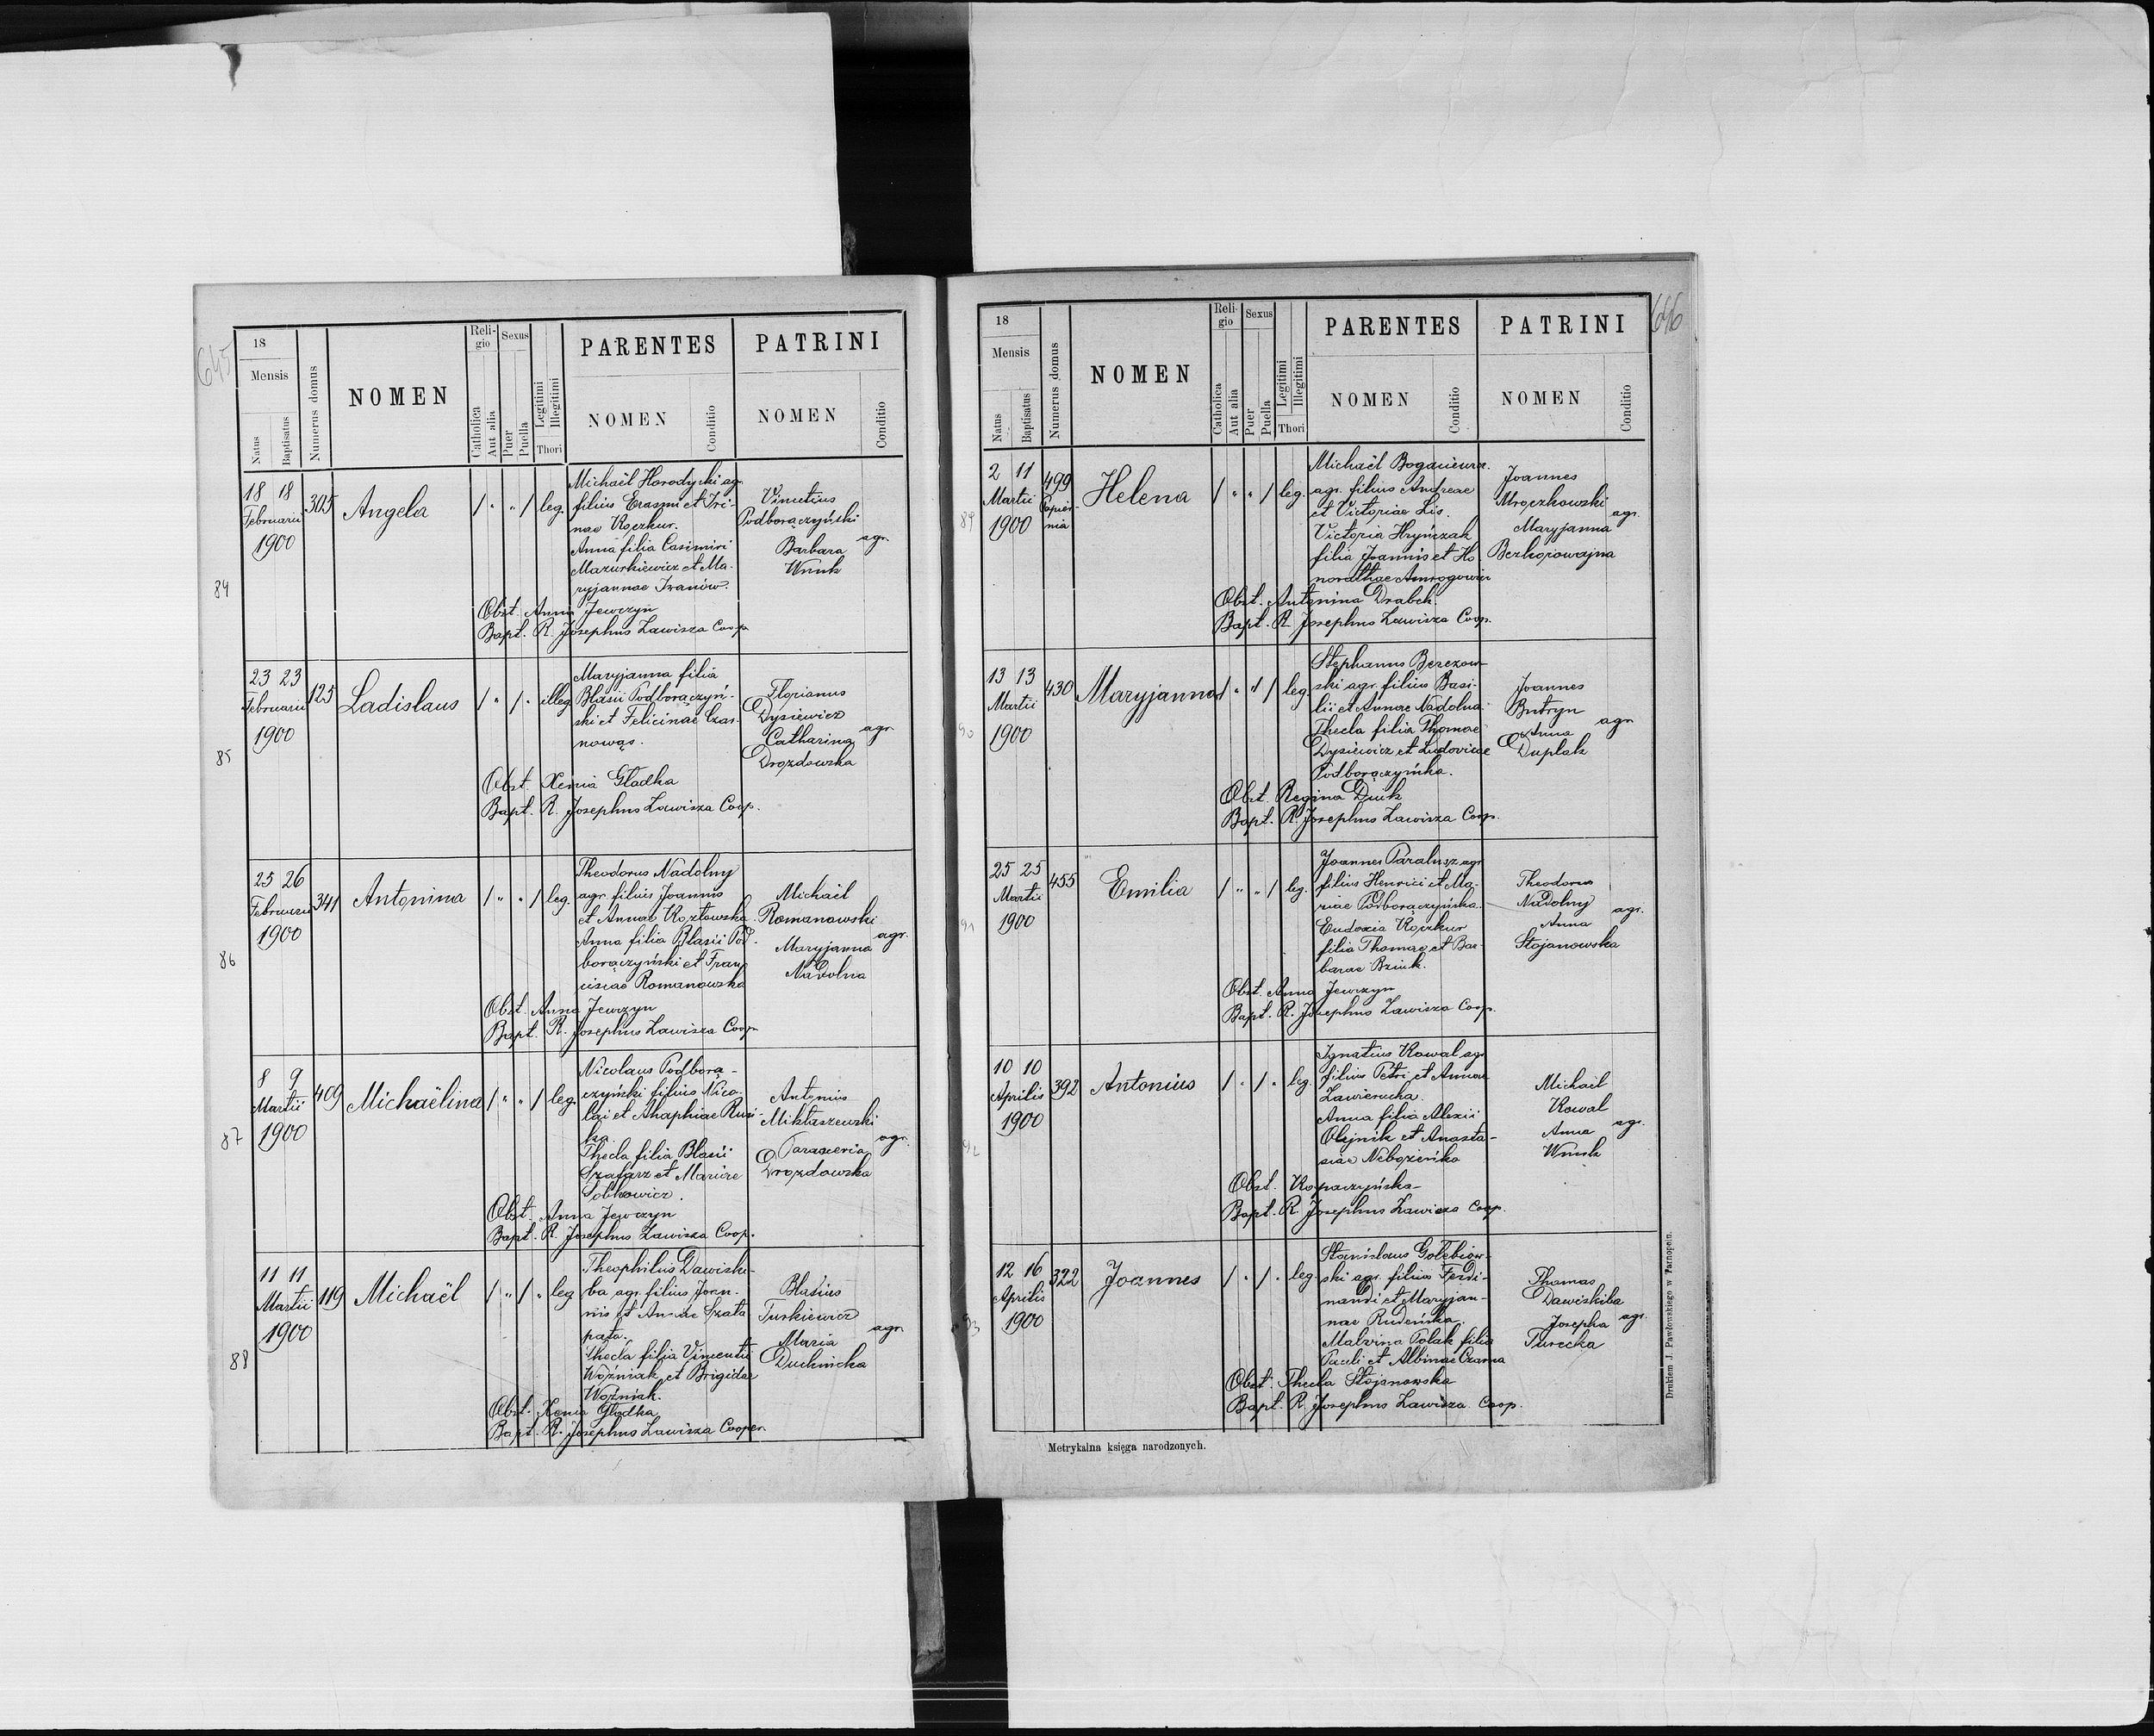 645
18
Mensis
Natus
Baptisatus
Numerus domus
NOMEN
Reli-
gio
Catholica
Aut alia
Sexus
Puer
Puella
Legitimi
Illegitimi
Thori
PARENTES
NOMEN
Conditio
PATRINI
NOMEN
Conditio
84
18 18
Februarii
1900
305
Angela
/ " " / leg.
Michaël Horodyski agr.
filius Erasmi et Iri-
nae Koczkur.
Anna filia Casimiri
Mazurkiewicz et Ma-
ryjannae Iwanów.
Vincetius
Podborączyński
Barbara agr.
Wnuk
Obst. Anna Jewczyn
Bapt. R. Josephus Zawisza Coop.
85
23 23
Februarii
1900
125
Ladislaus
/ " / " illeg.
Maryjanna filia
Blasii Podborączyń-
ski et Felicinae Czar-
nowąs.
Florianus
Dysiewicz
Catharina agr.
Drozdowska
Obst. Xenia Gładka
Bapt. R. Josephus Zawisza Coop.
86
25 26
Februarii
1900
341
Antonina
/ " " / leg.
Theodorus Nadolny
agr. filius Joannis
et Annae Kozłowska.
Anna filia Blasii Pod-
borączyński et Fran-
ciscae Romanowska
Michaël
Romanowski
Maryjanna agr.
Nadolna
Obst. Anna Jewczyn
Bapt. R. Josephus Zawisza Coop.
87
8 9
Martii
1900
409
Michaëlina
/ " " / leg.
Nicolaus Podborą-
czyński filius Nico-
lai et Ahaphiae Rusi-
ka.
Thecla filia Blasii
Szafarz et Mariae
Sobkowicz.
Antonius
Mikłaszewski
Paraxeria agr.
Drozdowska
Obst. Anna Jewczyn
Bapt. R. Josephus Zawisza Coop.
88
11 11
Martii
1900
119
Michaël
/ " / " leg.
Theophilus Dawiski-
ba agr. filius Joan-
nis et Annae Szata
pata.
Thecla filia Vincentii
Woźniak et Brigidae
Woźniak.
Blasius
Turkiewicz
Maria agr.
Duchnicka
Obst. Xenia Gładka
Bapt. R. Josephus Zawisza Cooper.
646
18
Mensis
Natus
Baptisatus
Numerus domus
NOMEN
Reli-
gio
Catholica
Aut alia
Sexus
Puer
Puella
Legitimi
Illegitimi
Thori
PARENTES
NOMEN
Conditio
PATRINI
NOMEN
Conditio
89
2 11
Martii
1900
499
Papier-
nia
Helena
/ " " / leg.
Michaël
agr. filius Andreae
et Victoriae Lis.
Victoria Hryńczak
filia Joannis et Ho-
norathae
Joannes
Mroczkowski
Maryjanna agr.
Bezkorowajna
Obst. Antonina Drabek.
Bapt. R. Josephus Zawisza Coop.
90
13 13
Martii
1900
430
Maryjanna
/ " " / leg.
Stephanus Berezow-
ski agr. filius Basi-
lii et Annae Nadolna.
Thecla filia Thomae
Dysiewicz et Ludovicae
Podborączyńska.
Joannes
Butryn
Anna agr.
Duplak
Obst. Regina Duik
Bapt. R. Josephus Zawisza Coop.
91
25 25
Martii
1900
455
Emilia
/ " " / leg.
Joannes Paralusz agr.
filius Henrici et Ma-
riae Podborączyńska.
Eudoxia Koczkur
filia Thomae et Bar-
barae Bziuk.
Theodorus
Nadolny
Anna agr.
Stojanowska
Obst. Anna Jewczyn
Bapt. R. Josephus Zawisza Coop.
92
10 10
Aprilis
1900
392
Antonius
/ " / " leg.
Ignatius Kowal agr.
filius Petri et Annae
Zawierucha.
Anna filia Alexii
Olejnik et Anasta-
siae Nebozieńko
Michaël
Kowal
Anna agr.
Wnuk
Obst. Kopaczyńska
Bapt. R. Josephus Zawisza Coop.
93
12 16
Aprilis
1900
322
Joannes
/ " / " leg.
Stanislaus Gołębiow-
ski agr. filius Ferdi-
nandi et Maryjan-
nae Rudeńska.
Malvina Polak filia
Pauli et Albinae Czarna
Thomas
Dawiskiba
Josepha agr.
Turecka
Obst. Thecla Stojanowska
Bapt. R. Josephus Zawisza Coop.
Metrykalna księga narodzonych.
Drukiem J. Pawłowskiego w Tarnopolu.